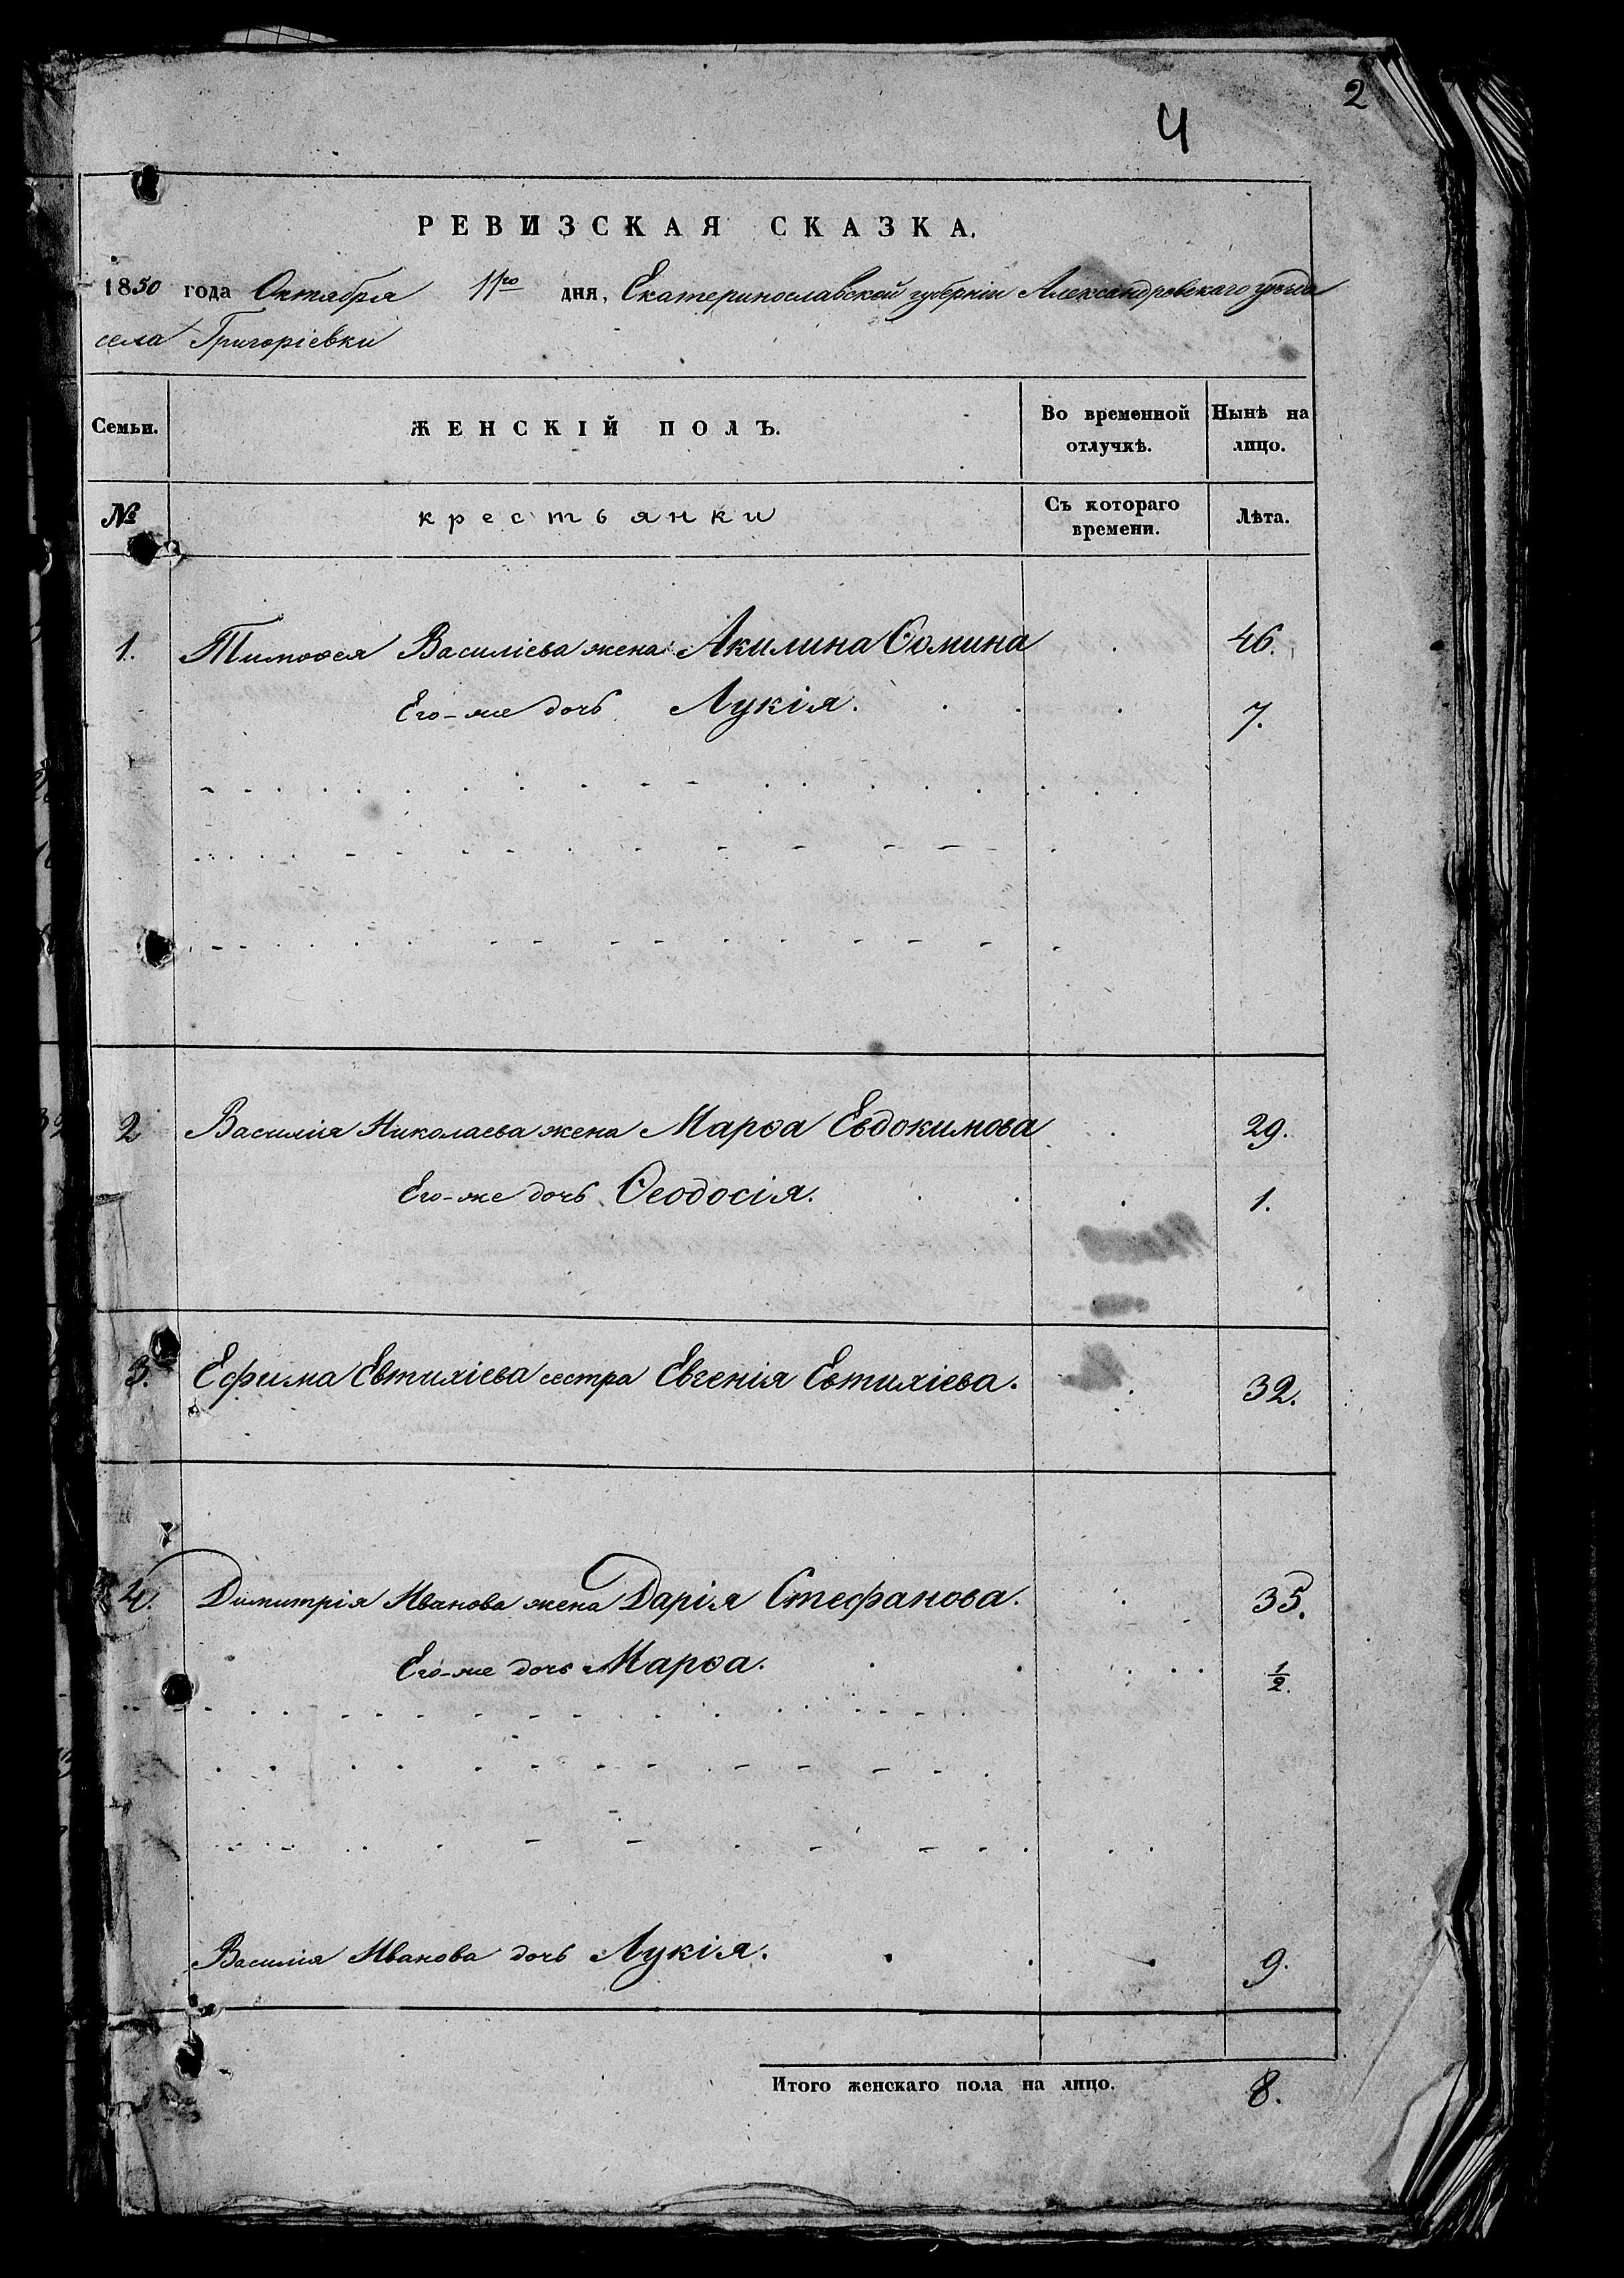 2
4
РЕВИЗСКАЯ СКАЗКА.
1850 года Октября 11го дня, Екатеринославской губерніи Александровскаго уѣзда
села Григоріевки
Семьи. ЖЕНСКІЙ ПОЛЪ. Во временной отлучкѣ. Нынѣ на лицо.
№ крестьянки Съ котораго времени. Лѣта.
1. Тимоѳея Василіева жена Акилина Ѳомина 46.
Его-же дочь Лукія. 7.
2 Василія Николаева жена Марѳа Евдокимова 29.
Его-же дочь Ѳеодосія. 1.
3. Ефима Евтихіева сестра Евгенія Евтихіева. 32.
4. Димитрія Иванова жена Дарія Стефанова. 35.
Его-же дочь Марѳа. 1/2.
Василія Иванова дочь Лукія. 9.
Итого женскаго пола на лицо. 8.